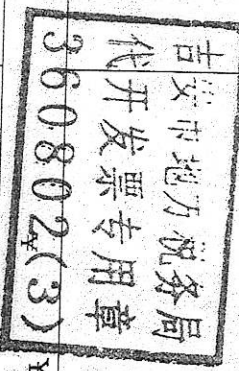 吉安市地方税务局
代开发票专用章
360802(3)